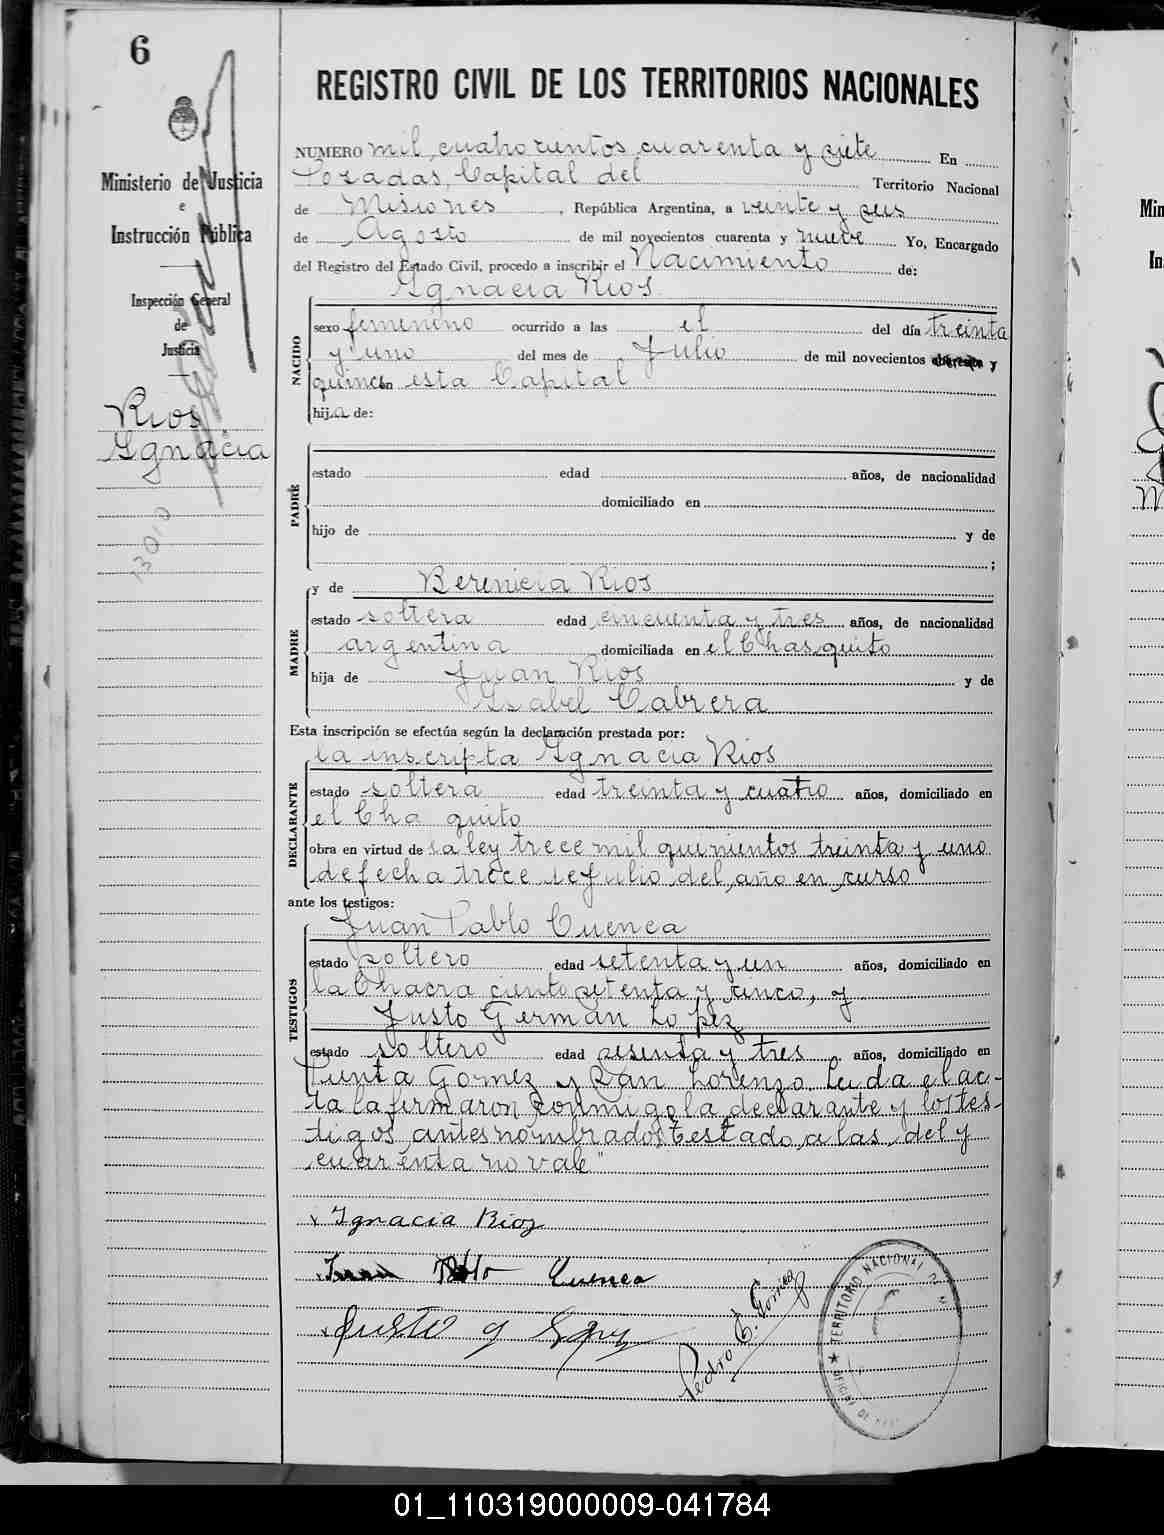 6
REGISTRO CIVIL DE LOS TERRITORIOS NACIONALES
Ministerio de Justicia
e
Instrucción Pública
Inspección General
de
Justicia
Rios
Ignacia
13010
NUMERO mil cuatrocientos cuarenta y siete En
Posadas, Capital del Territorio Nacional
de Misiones, República Argentina, a veinte y seis
de Agosto de mil novecientos cuarenta y nueve Yo, Encargado
del Registro del Estado Civil, procedo a inscribir el Nacimiento de:
Ignacia Rios
NACIDO
sexo femenino ocurrido a las el del día treinta
y uno del mes de Julio de mil novecientos cuarenta y
quince en esta Capital
hija de:
PADRE
estado edad años, de nacionalidad
domiciliado en
hijo de y de
;
MADRE
y de Berenicia Rios
estado soltera edad cincuenta y tres años, de nacionalidad
argentina domiciliada en el Chasquito
hija de Juan Rios y de
Isabel Cabrera
Esta inscripción se efectúa según la declaración prestada por:
la inscripta Ignacia Rios
DECLARANTE
estado soltera edad treinta y cuatro años, domiciliado en
el Cha quito
obra en virtud de la ley trece mil quinientos treinta y uno
de fecha trece de Julio del año en curso
ante los testigos:
Juan Pablo Cuenca
TESTIGOS
estado soltero edad setenta y un años, domiciliado en
la Chacra ciento setenta y cinco, y
Justo German Lopez
estado soltero edad sesenta y tres años, domiciliado en
Punta Gomez y San Lorenzo. Leida el ac-
ta la firmaron conmigo la declarante y los tes-
tigos antes nombrados, testado, a las, del y
cuarenta no vale"
Ignacia Rios
Juan Pablo Cuenca
Justo g Lopez
Pedro C. Gomez
TERRITORIO NACIONAL DE M
OFICINA DE
01_110319000009-041784